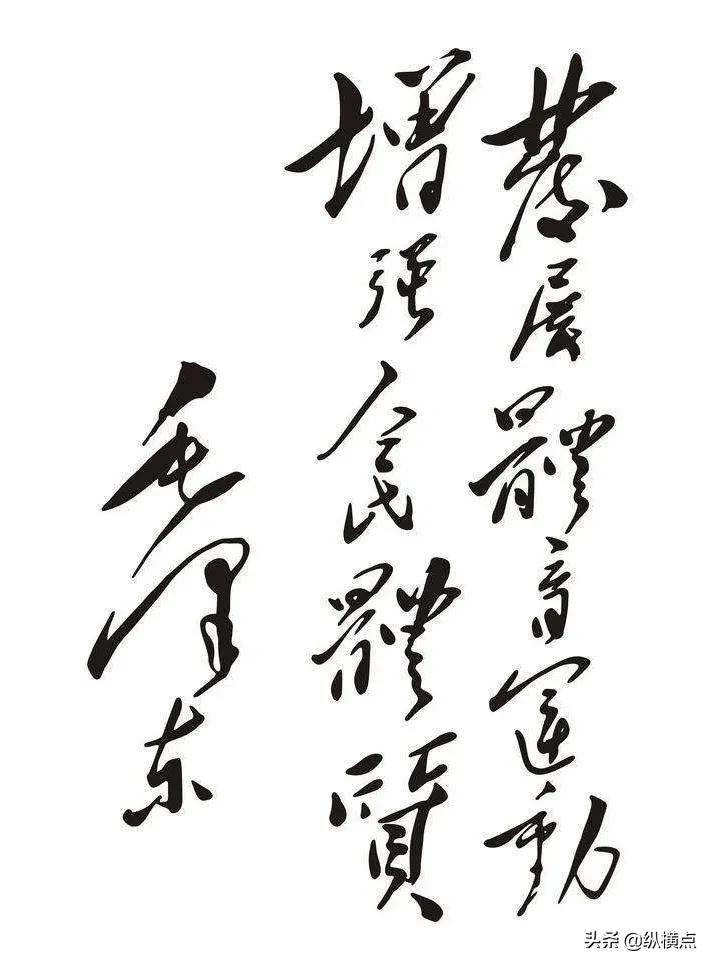 發展體育運動
增强人民體質
毛泽东
头条 @纵横点